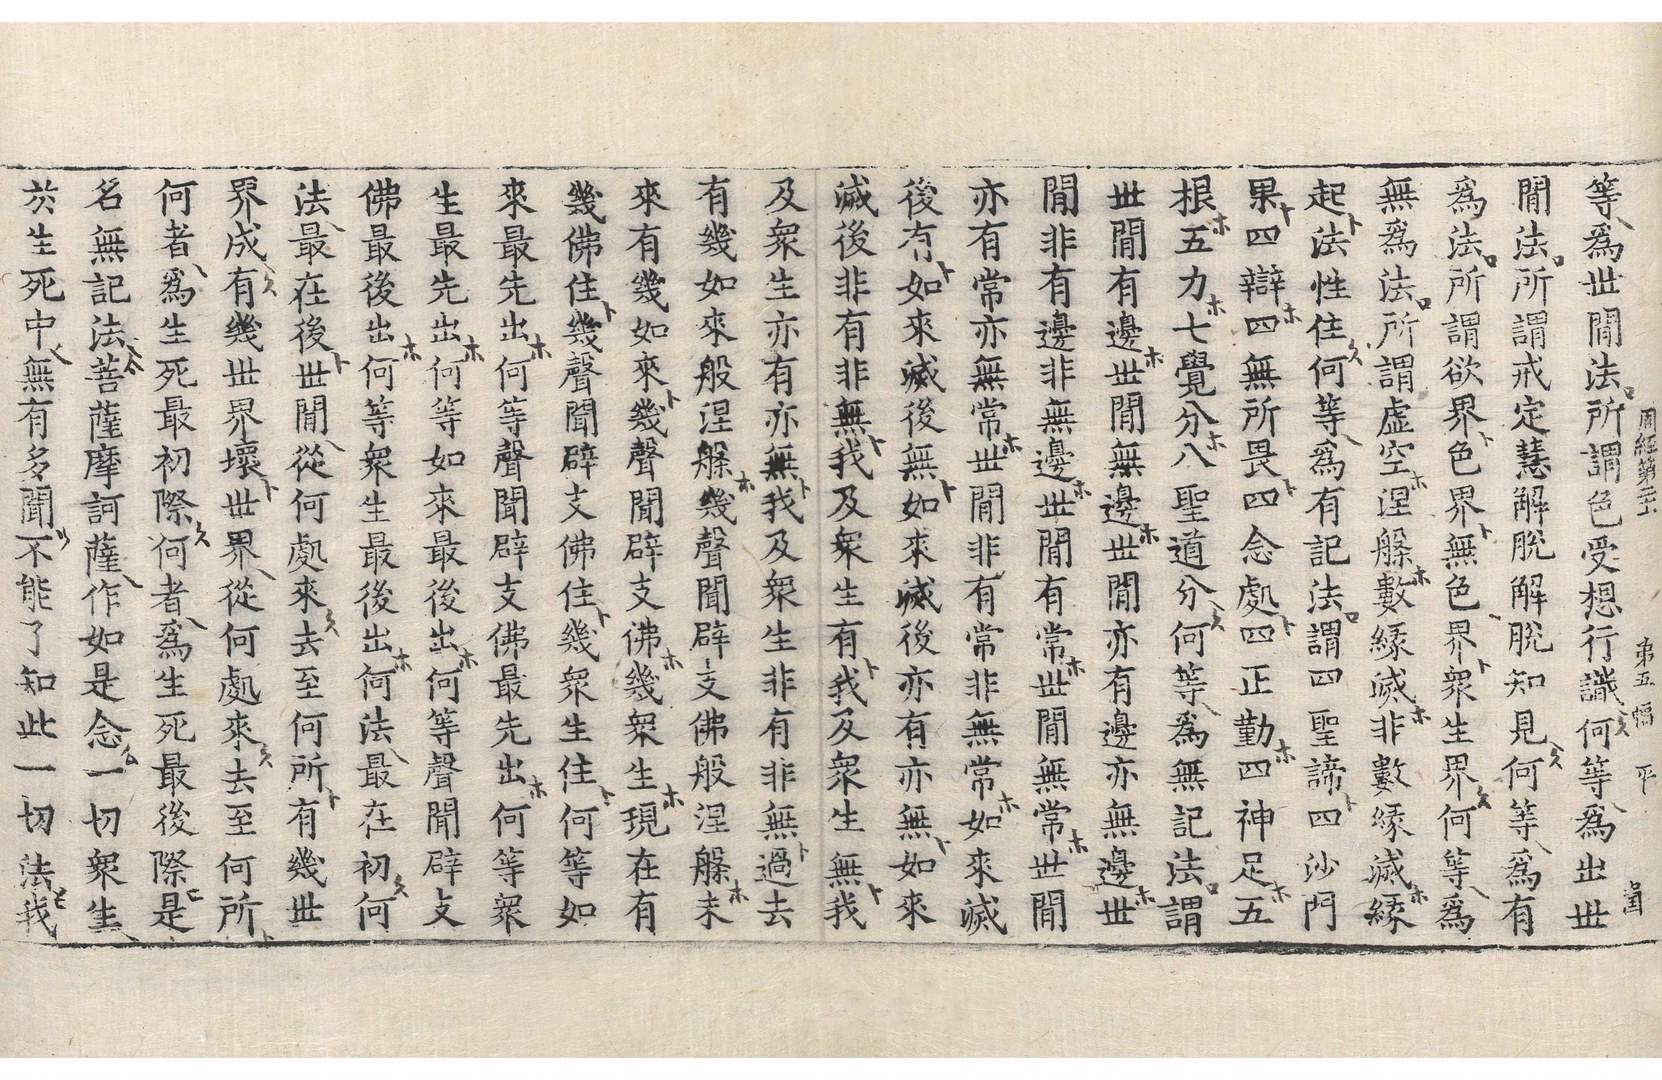 周經第二十 第五幅 平
等爲世閒法所謂色受想行識何等爲出世
閒法所謂戒定慧解脫解脫知見何等爲有
爲法所謂欲界色界無色界衆生界何等爲
無爲法所謂虛空涅槃數緣滅非數緣滅緣
起法性住何等爲有記法謂四聖諦四沙門
果四辯四無所畏四念處四正勤四神足五
根五力七覺分八聖道分何等爲無記法謂
世閒有邊世閒無邊世閒亦有邊亦無邊世
閒非有邊非無邊世閒有常世閒無常世閒
亦有常亦無常世閒非有常非無常如來滅
後有如來滅後無如來滅後亦有亦無如來
滅後非有非無我及衆生有我及衆生無我
及衆生亦有亦無我及衆生非有非無過去
有幾如來般涅槃幾聲聞辟支佛般涅槃未
來有幾如來幾聲聞辟支佛幾衆生現在有
幾佛住幾聲聞辟支佛住幾衆生住何等如
來最先出何等聲聞辟支佛最先出何等衆
生最先出何等如來最後出何等聲聞辟支
佛最後出何等衆生最後出何法最在初何
法最在後世閒從何處來去至何所有幾世
界成有幾世界壞世界從何處來去至何所
何者爲生死最初際何者爲生死最後際是
名無記法菩薩摩訶薩作如是念一切衆生
於生死中無有多聞不能了知此一切法我